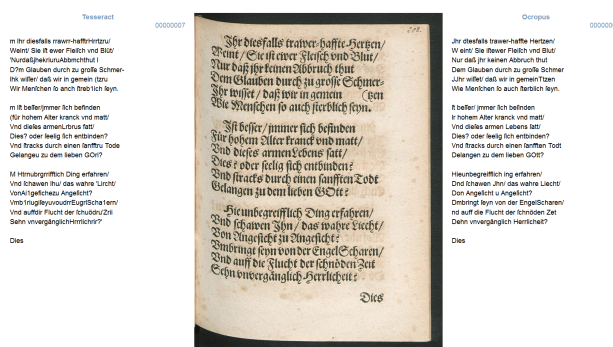 Tesseract
00000007
m Ihr diesfalls rrawrr-hafftrHrrtzru/
Weint/ Sie ift ewer Fleifch vnd Blüt/
'NurdaßjhekriuruAbbmchthut I
D?m Glauben durch zu groffe Schmer-
Ihk wiffer/ daß wir in gemein (tzru
Wir Menfchen fo anch ftreb1ich feyn.
m Ilt beffer/ jmmer fich befinden
(für hohem Alter kranck vnd matt/
Vnd diefes armenLrbrus fatt/
Dies? oder feelig fich entbinden?
Vnd ftracks durch einen fanfftru Tode
Gelangeu zu dem lieben GOri?
M Htrnubrgrrifftich Ding erfahren/
Vnd fchawen Ihu/ das wahre 'Lircht/
VonAl1gefichezu Angelicht?
Vmb1riuglleyuvoudrrEugrlScha1ern/
Vnd auffdir Flucht der fchubdru/Zrii
Sehn vnvergänglichHrrrlichrir?'
Dies
212.
Ihr diesfalls trawer-haffte-Hertzen/
Weint/ Sie ist ewer Fleisch vnd Blut/
Nur daß jhr keinen Abbruch thut
Dem Glauben durch zu grosse Schmer-
Ihr wisset/ daß wir in gemein (tzen
Wie Menschen so auch sterblich seyn.
Ist besser/ jmmer sich befinden
Für hohem Alter kranck vnd matt/
Vnd dieses armen Lebens satt/
Dies? oder seelig sich entbinden?
Vnd stracks durch einen sanfften Todt
Gelangen zu dem lieben GOtt?
Hie unbegreifflich Ding erfahren/
Vnd schawen Jhn/ das wahre Liecht/
Von Angesicht zu Angesicht?
Vmbringt seyn von der Engel Scharen/
Vnd auff die Flucht der schnöden Zeit
Sehn vnvergänglich Herrlicheit?
Dies
Ocropus
000000
Jhr dtesfalls trawer-haffte Hertzen/
W eint/ Sie iftewer Fleifch vnd Blut/
Nur daß jhr keinen Abbruch thut
Dem Glauben durch zu groffe Schmer-
Jhr wiffet/ daß wir in gemeinTtzen
Wie Menfchen fo auch fterblich feyn.
ft beffer/ jmmer fich befinden
Ir hohem Alter kranck vnd matt/
Vnd diefes armen Lebens fatt/
Dies? oder feelig fich entbinden?
Vnd ftracks durch einen fanfften Todt
Delangen zu dem lieben GOtt?
Hieunbegreifflich ing erfahren/
Dnd fchawen Jhn/ das wahre Liecht/
Don Angelicht u Angelicht?
Dmbringt feyn von der EngelScharen/
nd auff die Flucht der fchnöden Zet
Dehn vnvergänglich Herrlicheit?
Dies